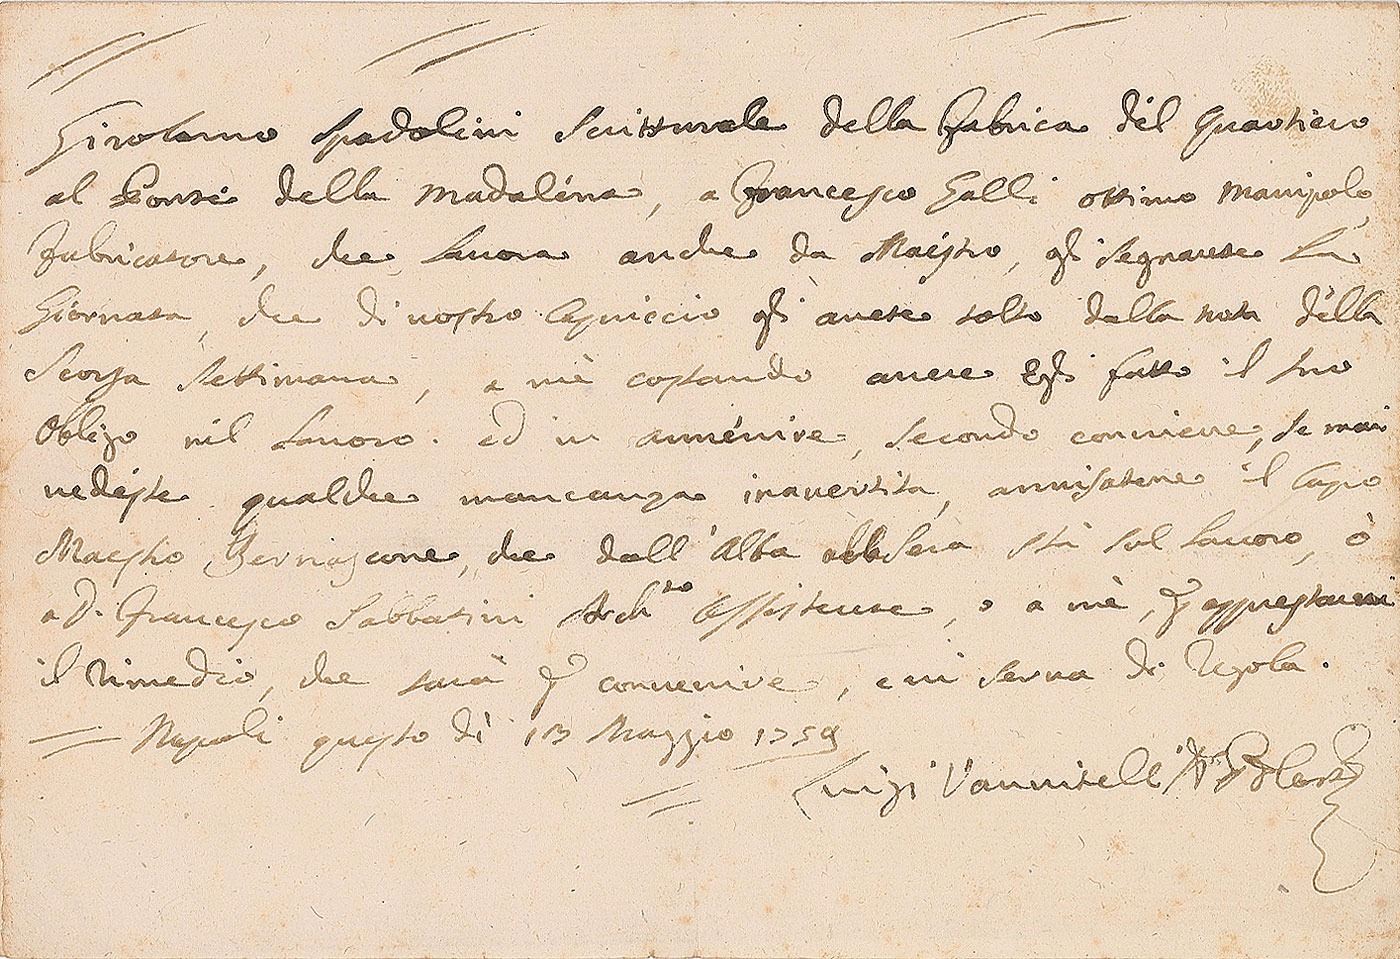 Girolamo Spadolini Scritturale della Fabrica del Quartiero
al Ponte della Madaléna, a Francesco Galli ottimo Manipolo
Fabricatore, che Lauora anche da Maestro, gli segnarete La
Giornata, che di uostro Capriccio gli auete tolto dalla nota della
Scorsa Settimana, a mè costando auere Egli fatto il suo
Obligo nel Lauoro. ed in auuénire, secondo conuiene, se mai
uedéste qualche mancanza inauertita, auuisatene il Capo
Maestro Bernascone, che dall'Alba alla Sera stà sul Lauoro, ò
a D. Francesco Sabbatini Archto Assistente, o a mè, p apprestarui
il rimedio, che sarà p conuenire, e ui serua di Regola.
Napoli questo dì 13 Maggio 1759
Luigi Vanuitelli